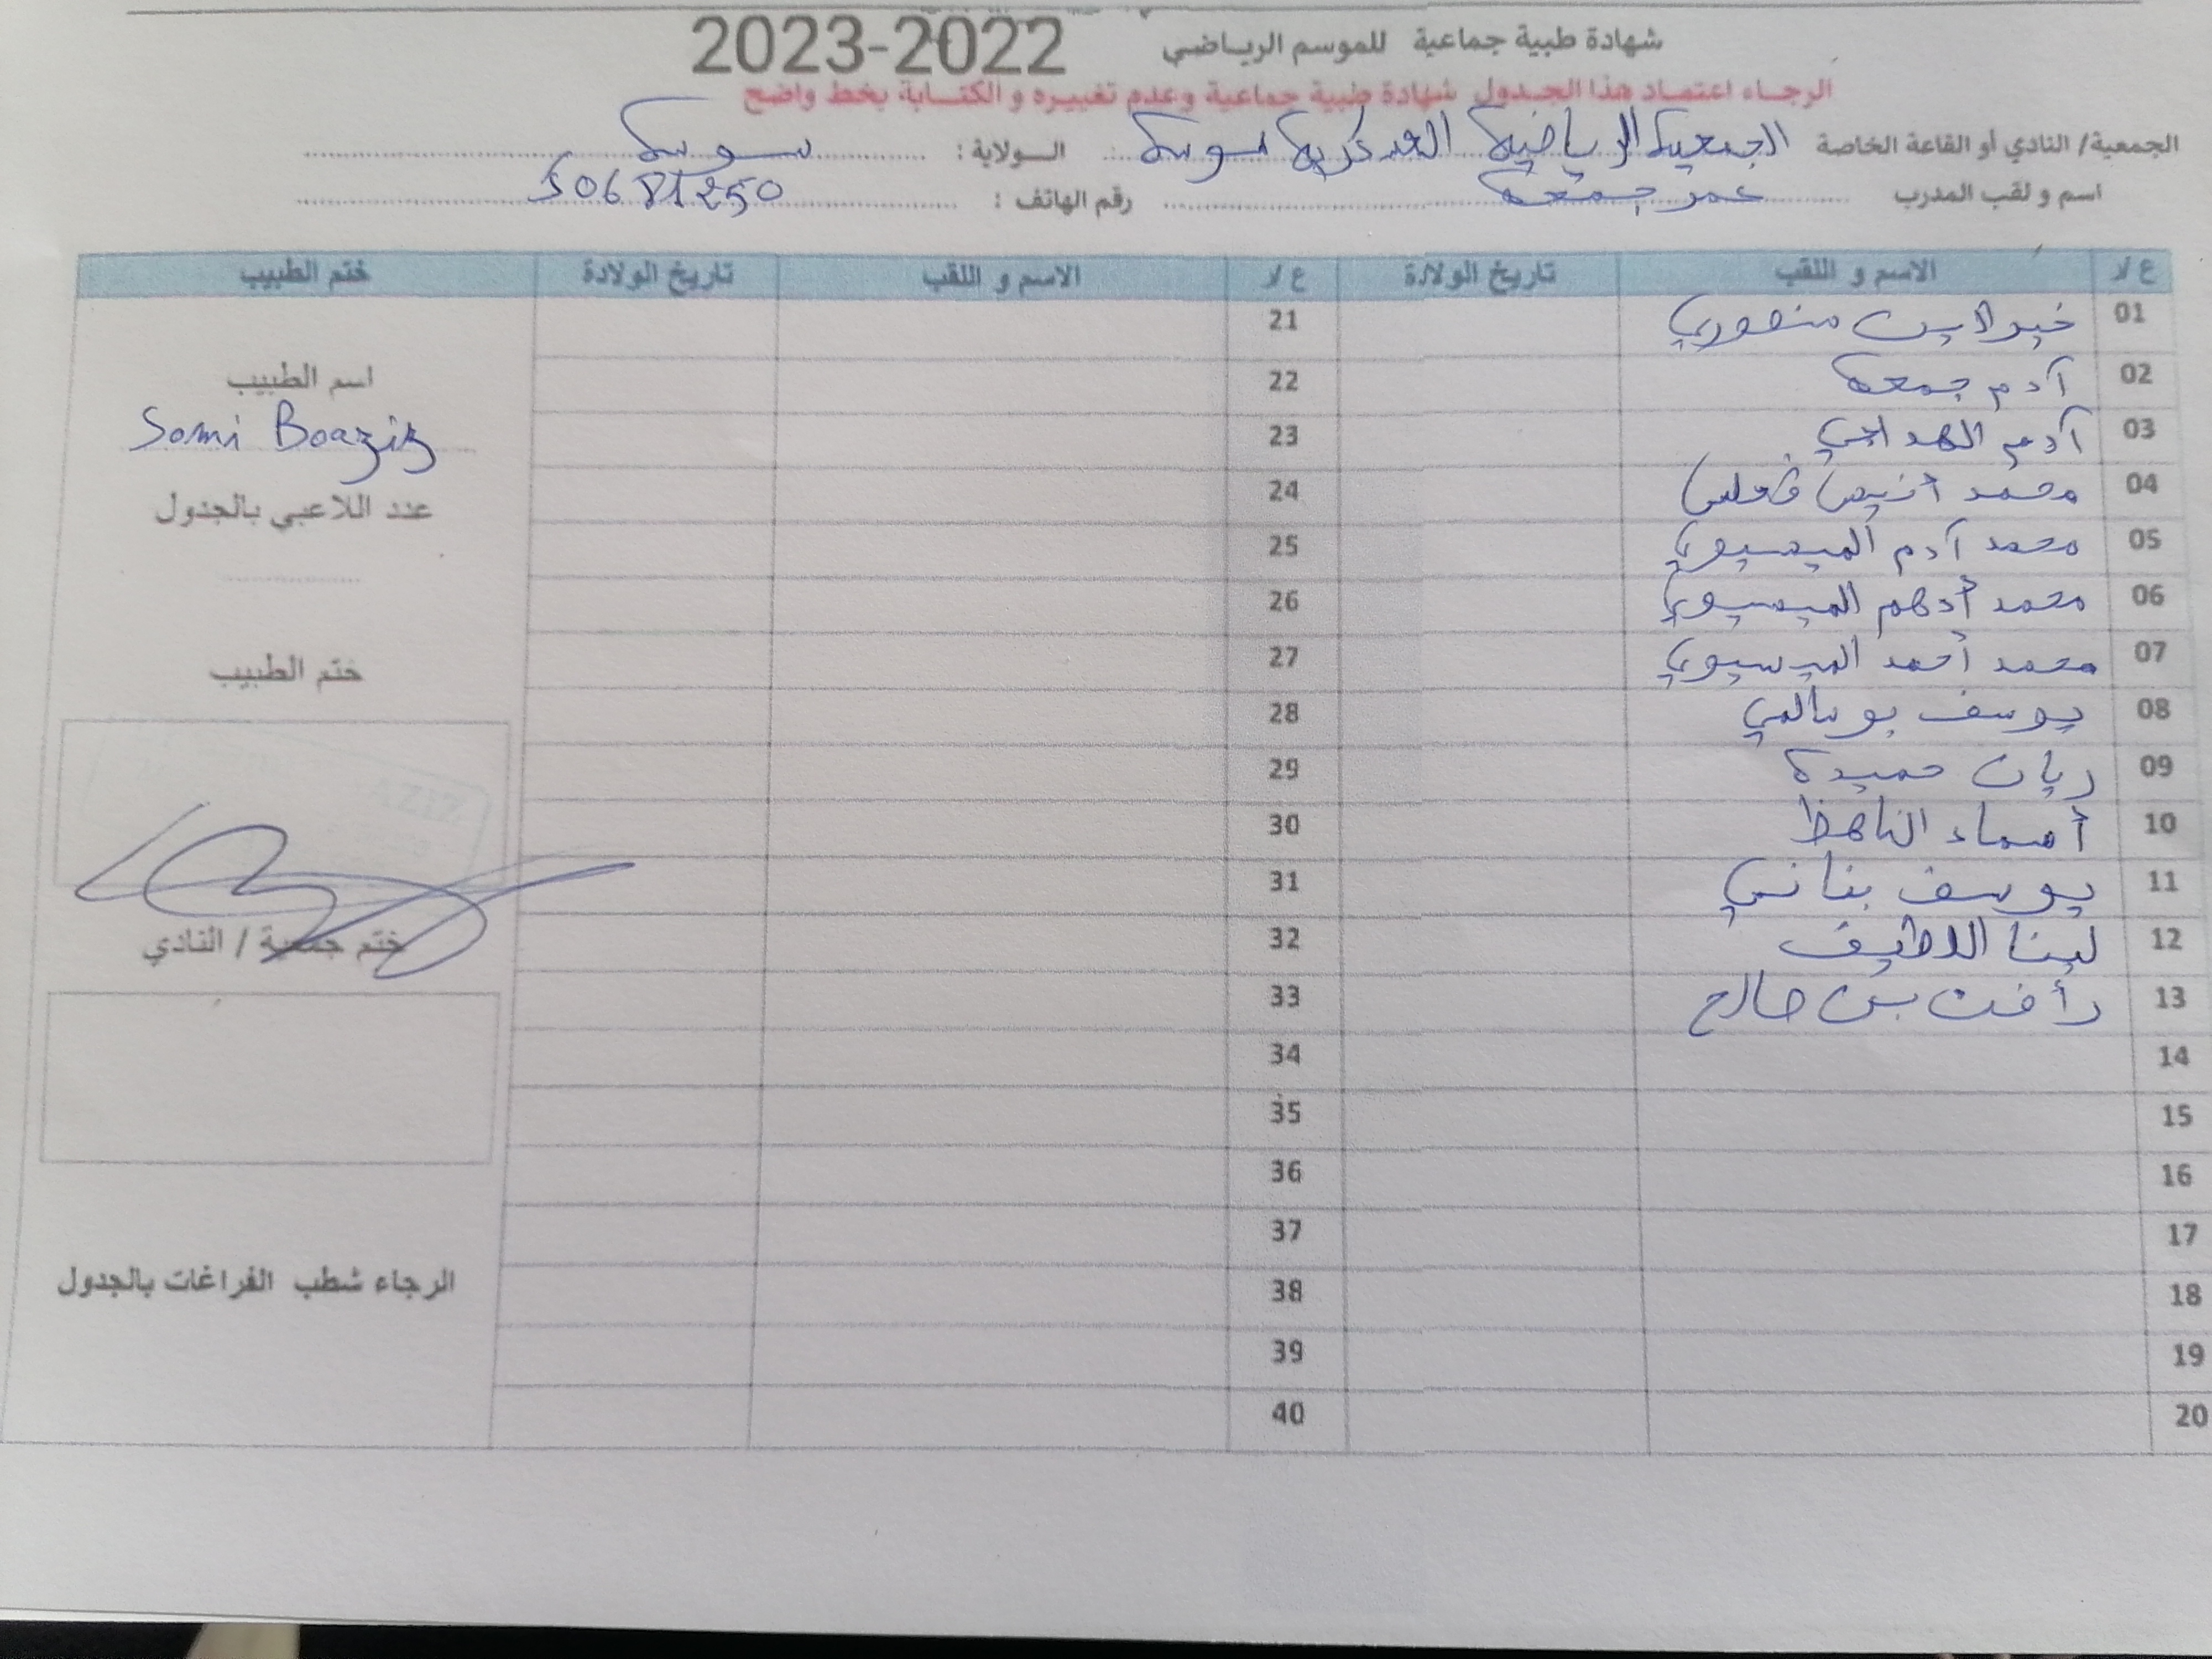 شهادة طبية جماعية للموسم الرياضي 2022-2023
الرجاء اعتماد هذا الجدول شهادة طبية جماعية وعدم تغييره و الكتابة بخط واضح
الجمعية/ النادي أو القاعة الخاصة الجمعية الرياضية العسكرية سوسة الولاية : سوسة
اسم و لقب المدرب عمر جمعة رقم الهاتف : 50681250
ع / ر الاسم و اللقب تاريخ الولادة ع / ر الاسم و اللقب تاريخ الولادة ختم الطبيب
01 خير الدين منصوري 21
02 آدم جمعة 22
اسم الطبيب
03 آدم الهداجي 23
Sami Boaziz
04 محمد أنيس 24
عدد اللاعبي بالجدول
05 محمد آدم الميسيوي 25
06 محمد أدهم الميسيوي 26
07 محمد أحمد الميسيوي 27
ختم الطبيب
08 يوسف بوسالمي 28
09 ريان حميدة 29
AZIZ
10 أسماء 30
11 يوسف بناني 31
12 لينا اللطيف 32
ختم جمعية / النادي
13 رأفت بن صالح 33
14 34
15 35
16 36
17 37
18 38
الرجاء شطب الفراغات بالجدول
19 39
20 40